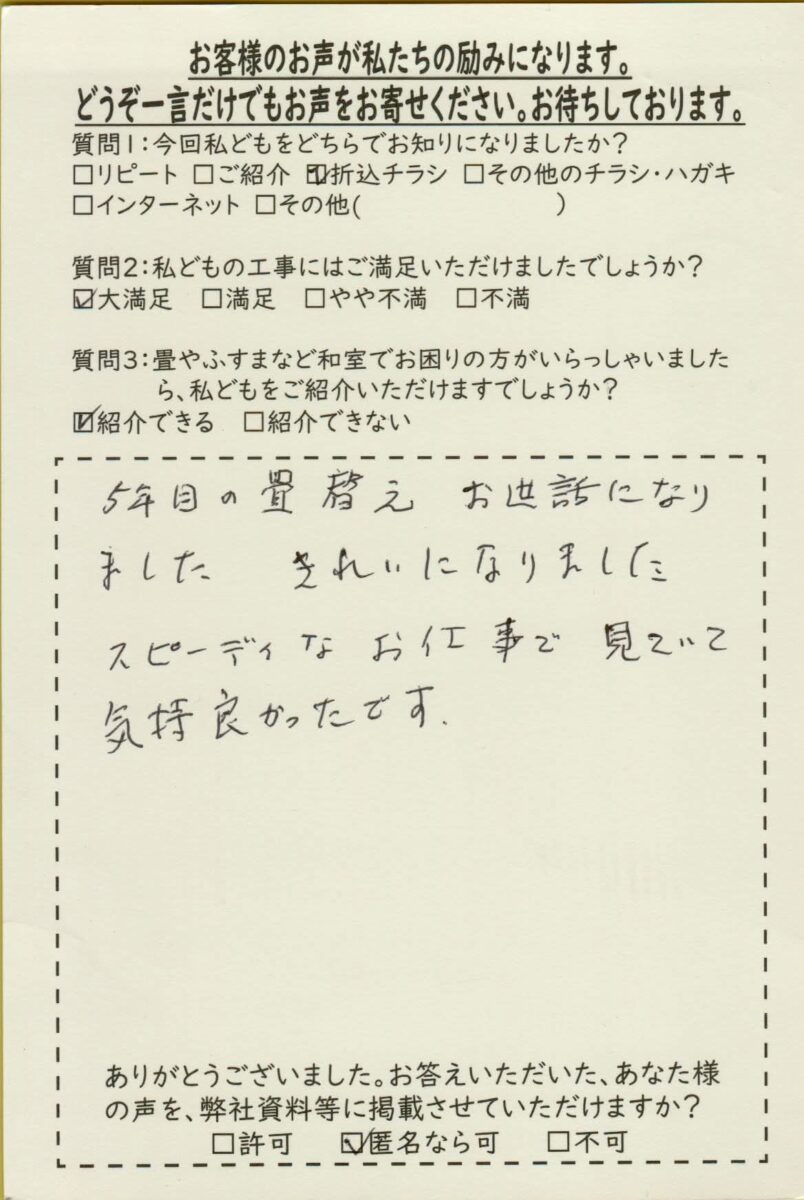 お客様のお声が私たちの励みになります。
どうぞ一言だけでもお声をお寄せください。お待ちしております。
質問1：今回私どもをどちらでお知りになりましたか？
□リピート □ご紹介 ☑折込チラシ □その他のチラシ・ハガキ
□インターネット □その他(　　　　　　　　)
質問2：私どもの工事にはご満足いただけましたでしょうか？
☑大満足 □満足 □やや不満 □不満
質問3：畳やふすまなど和室でお困りの方がいらっしゃいました
ら、私どもをご紹介いただけますでしょうか？
☑紹介できる □紹介できない
5年目の畳替え お世話になり
ました きれいになりました
スピーディな お仕事で 見ていて
気持良かったです.
ありがとうございました。お答えいただいた、あなた様
の声を、弊社資料等に掲載させていただけますか？
□許可 ☑匿名なら可 □不可